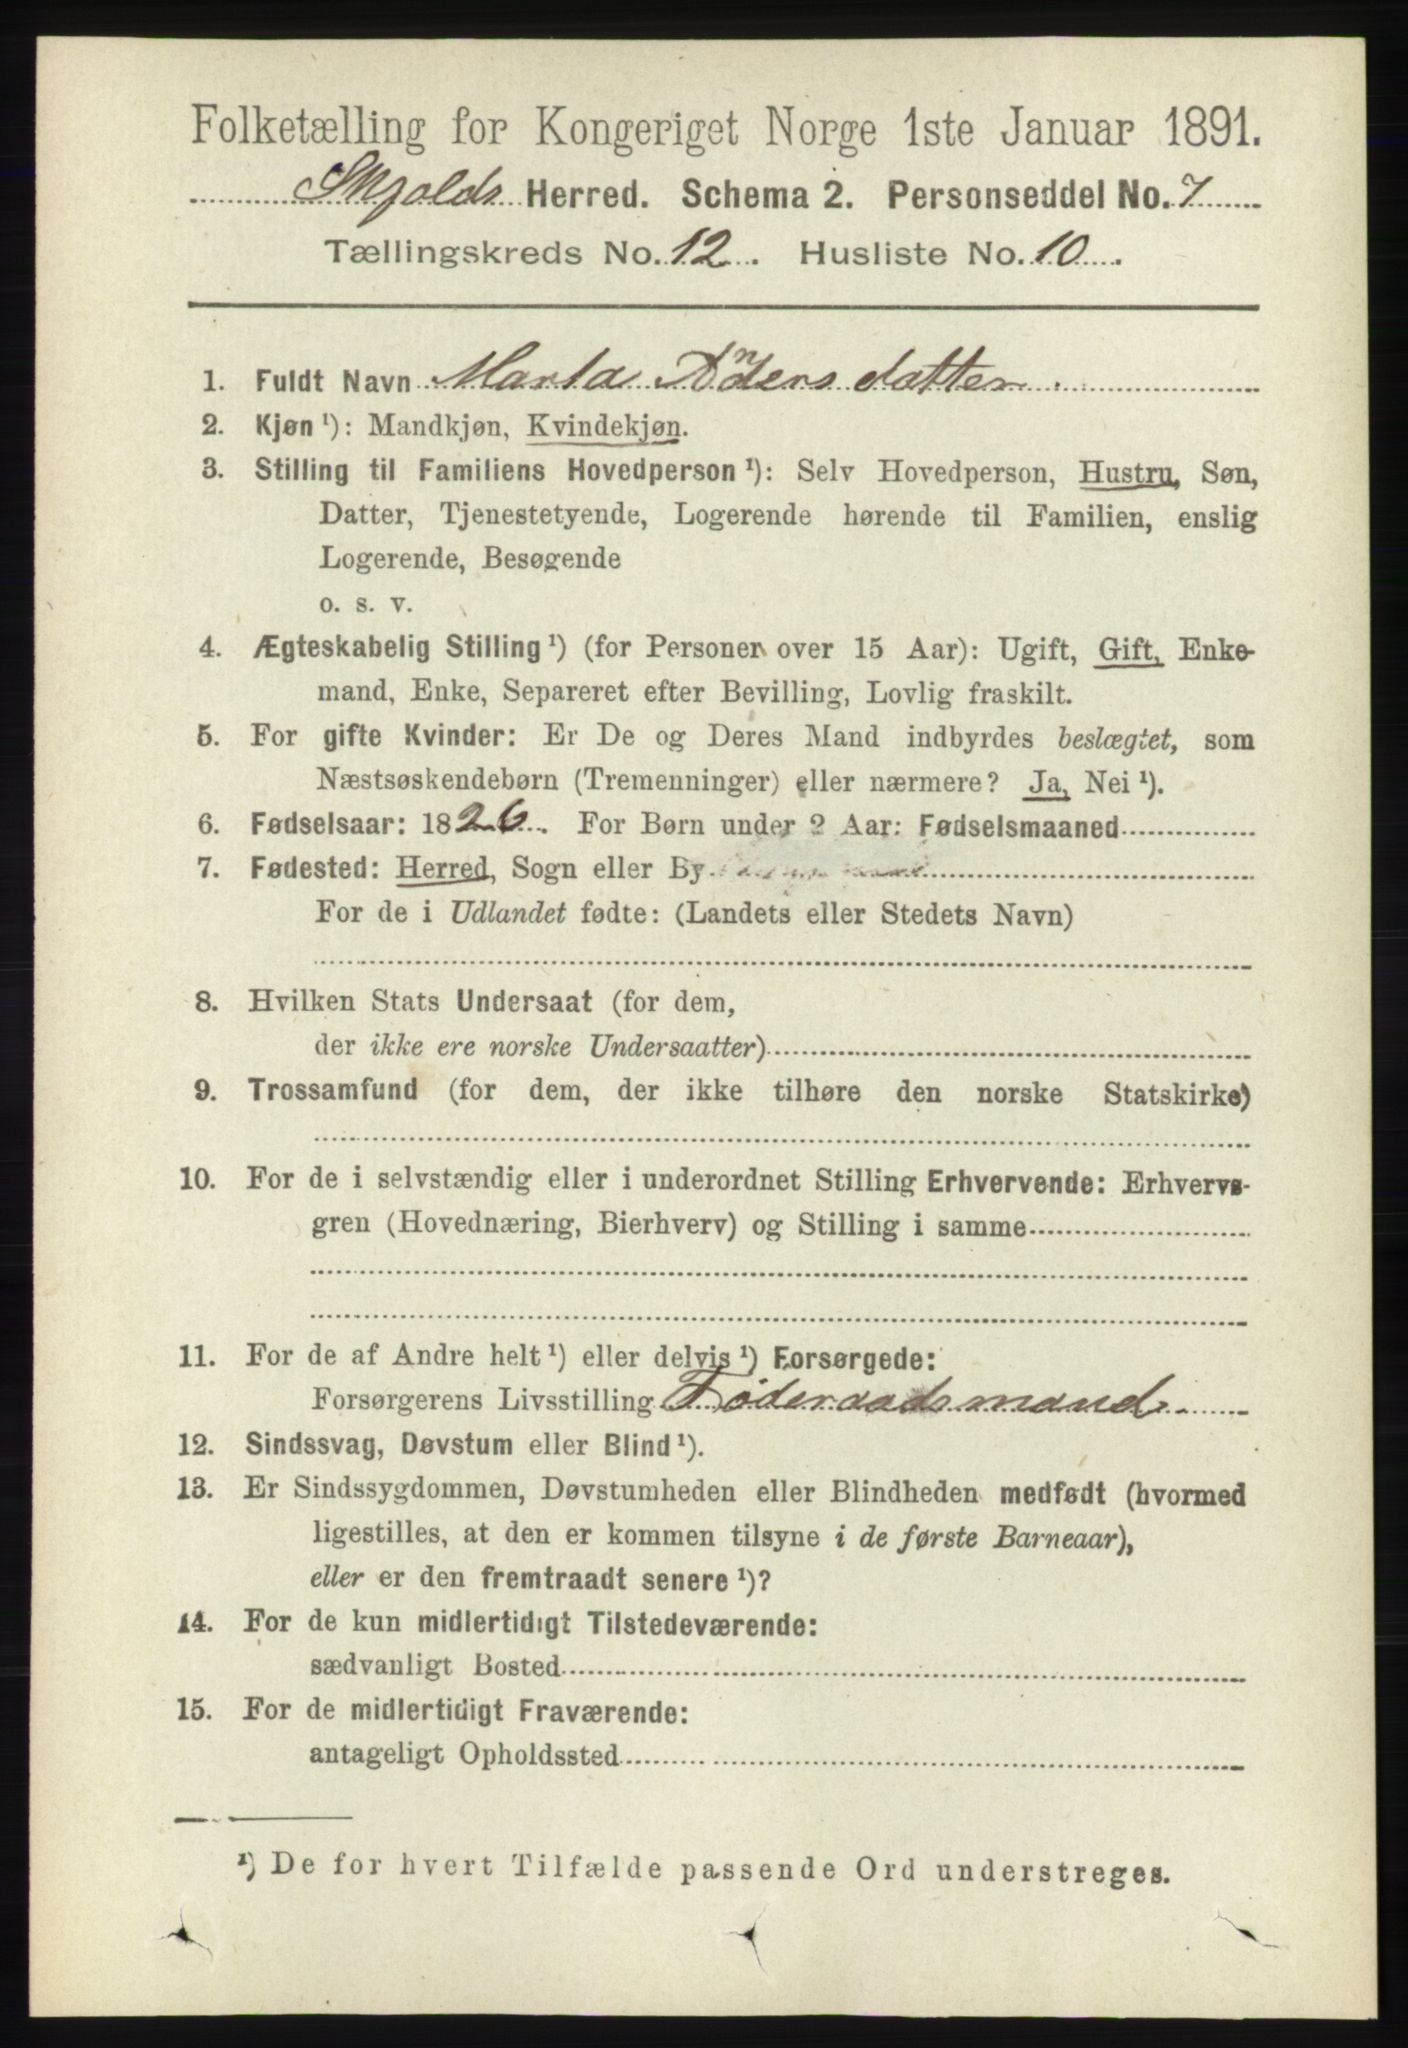 Folketælling for Kongeriget Norge 1ste Januar 1891.
Skjolds Herred. Schema 2. Personseddel No. 7
Tællingskreds No. 12. Husliste No. 10.
1. Fuldt Navn Marta Andersdatter.
2. Kjøn ¹): Mandkjøn, Kvindekjøn.
3. Stilling til Familiens Hovedperson ¹): Selv Hovedperson, Hustru, Søn,
Datter, Tjenestetyende, Logerende hørende til Familien, enslig
Logerende, Besøgende
o. s. v.
4. Ægteskabelig Stilling ¹) (for Personer over 15 Aar): Ugift, Gift, Enke-
mand, Enke, Separeret efter Bevilling, Lovlig fraskilt.
5. For gifte Kvinder: Er De og Deres Mand indbyrdes beslægtet, som
Næstsøskendebørn (Tremenninger) eller nærmere? Ja, Nei ¹).
6. Fødselsaar: 1826. For Børn under 2 Aar: Fødselsmaaned
7. Fødested: Herred, Sogn eller By
For de i Udlandet fødte: (Landets eller Stedets Navn)
8. Hvilken Stats Undersaat (for dem,
der ikke ere norske Undersaatter)
9. Trossamfund (for dem, der ikke tilhøre den norske Statskirke)
10. For de i selvstændig eller i underordnet Stilling Erhvervende: Erhvervs-
gren (Hovednæring, Bierhverv) og Stilling i samme
11. For de af Andre helt ¹) eller delvis ¹) Forsørgede:
Forsørgerens Livsstilling Føderaadsmand
12. Sindssvag, Døvstum eller Blind ¹).
13. Er Sindssygdommen, Døvstumheden eller Blindheden medfødt (hvormed
ligestilles, at den er kommen tilsyne i de første Barneaar),
eller er den fremtraadt senere ¹)?
14. For de kun midlertidigt Tilstedeværende:
sædvanligt Bosted
15. For de midlertidigt Fraværende:
antageligt Opholdssted
¹) De for hvert Tilfælde passende Ord understreges.